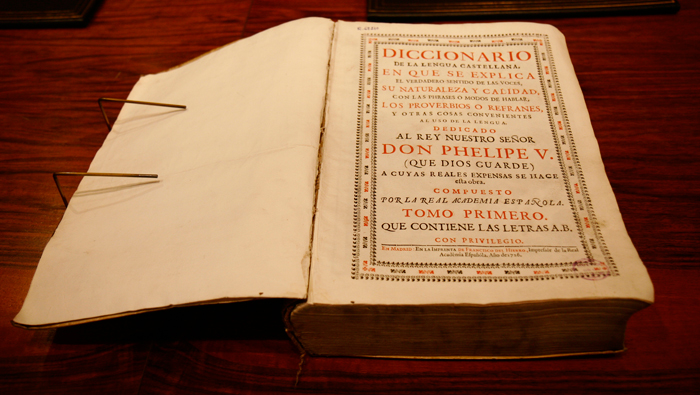 DICCIONARIO
DE LA LENGUA CASTELLANA,
EN QUE SE EXPLICA
EL VERDADERO SENTIDO DE LAS VOCES,
SU NATURALEZA Y CALIDAD,
CON LAS PHRASES O MODOS DE HABLAR,
LOS PROVERBIOS O REFRANES,
Y OTRAS COSAS CONVENIENTES
AL USO DE LA LENGUA.
DEDICADO
AL REY NUESTRO SEÑOR
DON PHELIPE V.
(QUE DIOS GUARDE)
A CUYAS REALES EXPENSAS SE HACE
esta obra.
COMPUESTO
POR LA REAL ACADEMIA ESPAÑOLA.
TOMO PRIMERO.
QUE CONTIENE LAS LETRAS A.B.
CON PRIVILEGIO.
EN MADRID: EN LA IMPRENTA DE FRANCISCO DEL HIERRO, Impressor de la Real
Académia Española, Año de 1726.